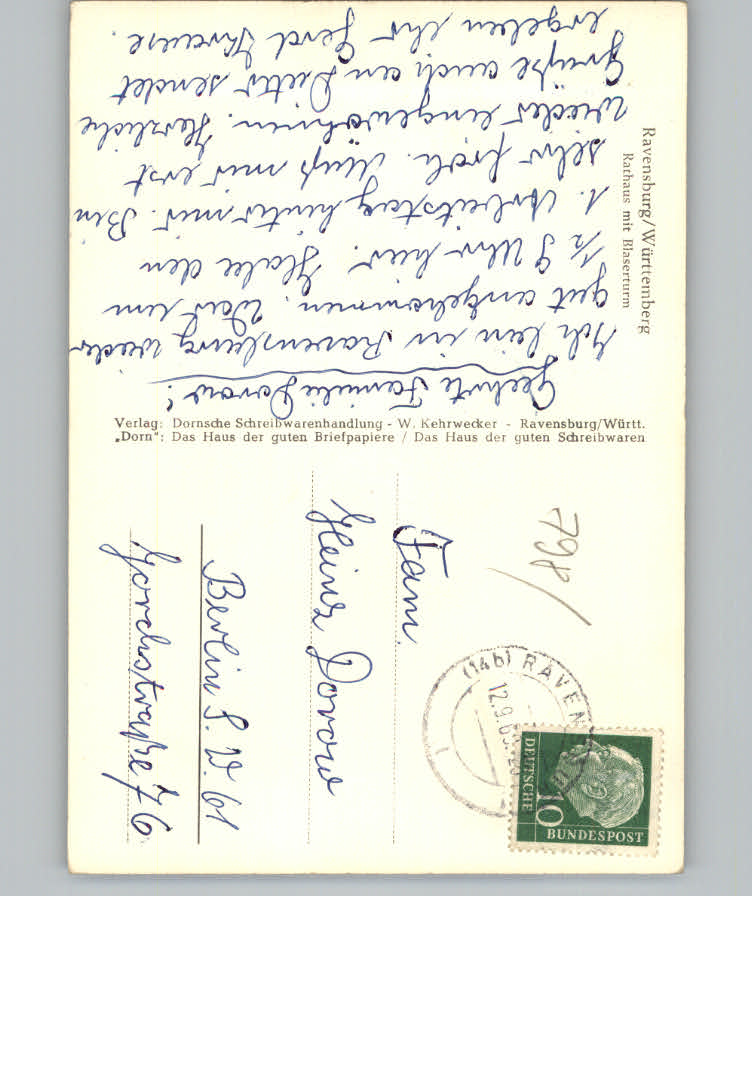 Geehrte Familie Dorow!
Ich bin in Ravensburg wieder
gut angekommen. War um
1/2 9 Uhr hier. Habe den
1. Arbeitstag hinter mir. Bin
sehr froh. Muß mir erst
wieder eingewöhnen. Herzliche
Grüße auch an Dieter sendet
ergeben Ihr Gerd Krause.
Ravensburg/Württemberg
Rathaus mit Blaserturm
Verlag: Dornsche Schreibwarenhandlung - W. Kehrwecker - Ravensburg/Württ.
„Dorn": Das Haus der guten Briefpapiere / Das Haus der guten Schreibwaren
798/
(14b) RAVENS
12.9.60
DEUTSCHE
10
BUNDESPOST
Fam.
Heinz Dorow
Berlin S.W. 61
Yorckstraße 76